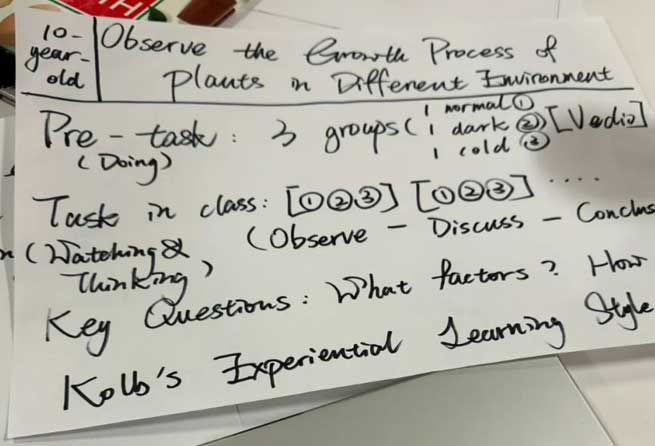 10-
year-
old
Observe the Growth Process of
Plants in Different Environment
Pre-task: 3 groups (1 normal ①
1 dark ② [Vedio]
1 cold ③
(Doing)
Task in class: [①②③] [①②③] ....
(Watching &
Thinking)
(Observe - Discuss - Conclus
Key Questions: What factors? How
Kolb's Experiential Learning Style